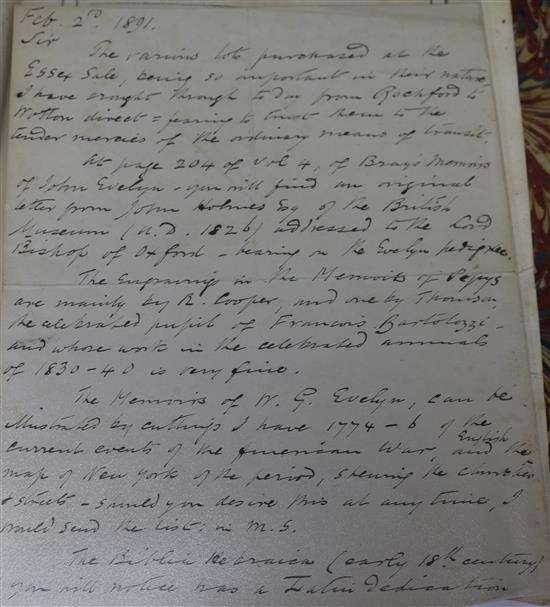 Feb. 2nd. 1891.
Sir
The various lots purchased at the
Essex Sale, being so important in their nature
I have brought through to day from Rochford to
Wotton direct = fearing to trust them to the
tender mercies of the ordinary means of transit.
At page 204 of vol 4, of Bray's Memoirs
of John Evelyn - you will find an original
letter from John Holmes Esq of the British
Museum (A.D. 1826) addressed to the Lord
Bishop of Oxford - bearing on the Evelyn pedigree.
The Engraving in the Memoirs of Pepys
are mainly by R. Cooper, and one by Thomson,
the celebrated pupil of Francois Bartolozzi -
and whose work in the celebrated annuals
of 1830-40 is very fine.
The Memoirs of W. G. Evelyn, can be
illustrated by cuttings I have 1774-6 of the
current events of the American War, and the English
map of New York of the period, shewing the churches
& streets - should you desire this at any time, I
would send the list: in M.S.
The Biblia Hebraica (early 18th century)
you will notice has a Latin dedication